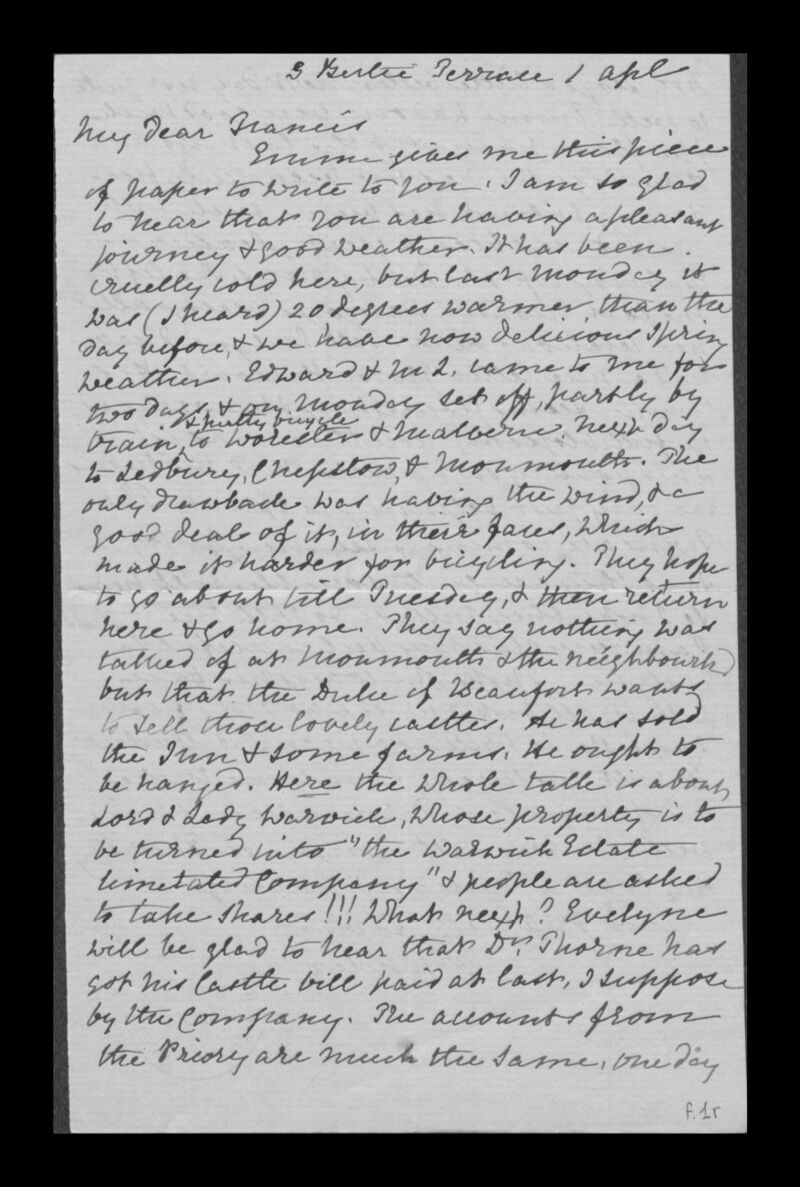 5 Bertie Terrace 1 Apl
My dear Francis
Emma gives me this piece
of paper to write to you. I am so glad
to hear that you are having a pleasant
journey & good weather. It has been
cruelly cold here, but last Monday it
was (I heard) 20 degrees warmer than the
day before, & we have now delicious spring
weather. Edward & M L. came to me for
two days & on Monday set off, partly by
& partly bicycle
train, to Worcester & Malvern. Next day
to Ledbury, Chepstow, & Monmouth. The
only drawback was having the wind, & a
good deal of it, in their faces, which
made it harder for bicycling. They hope
to go about till Tuesday, & then return
here & go home. They say nothing was
talked of at Monmouth & the neighbourhd
but that the Duke of Beaufort wants
to sell those lovely castles. He has sold
the Inn & some farms. He ought to
be hanged. Here the whole talk is about
Lord & Lady Warwick, whose property is to
be turned into "the Warwick Estate
limetated Company" & people are asked
to take shares!!! What next? Evelyne
will be glad to hear that Dr. Thorne has
got his Castle bill paid at last, I suppose
by the Company. The accounts from
the Priory are much the same, one day
f.1r